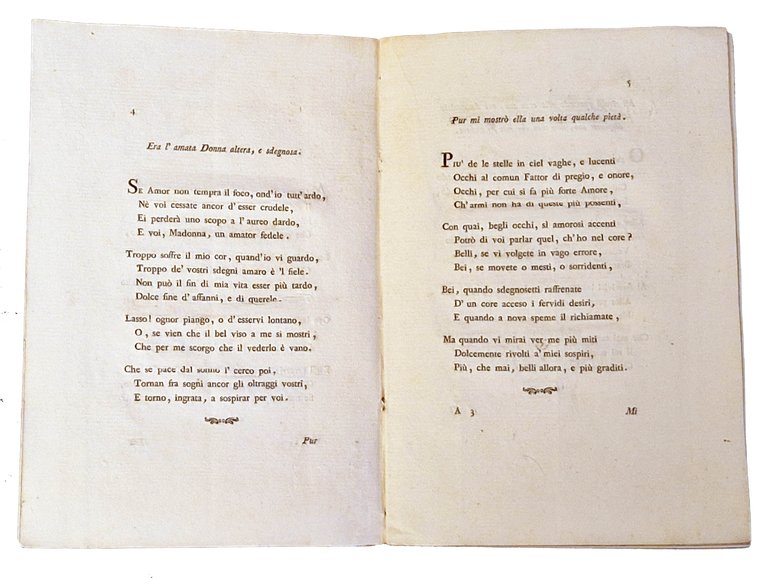 4
Era l' amata Donna altera, e sdegnosa.
SE Amor non tempra il foco, ond'io tutt'ardo,
Nè voi cessate ancor d'esser crudele,
Ei perderà uno scopo a l'aureo dardo,
E voi, Madonna, un amator fedele.
Troppo soffre il mio cor, quand'io vi guardo,
Troppo de' vostri sdegni amaro è 'l fiele.
Non può il fin di mia vita esser più tardo,
Dolce fine d'affanni, e di querele.
Lasso! ognor piango, o d'esservi lontano,
O, se vien che il bel viso a me si mostri,
Che per me scorgo che il vederlo è vano.
Che se pace dal sonno i' cerco poi,
Tornan fra sogni ancor gli oltraggi vostri,
E torno, ingrata, a sospirar per voi.
Pur
5
Pur mi mostrò ella una volta qualche pietà.
PIU' de le stelle in ciel vaghe, e lucenti
Occhi al comun Fattor di pregio, e onore,
Occhi, per cui si fa più forte Amore,
Ch'armi non ha di queste più possenti,
Con quai, begli occhi, sì amorosi accenti
Potrò di voi parlar quel, ch'ho nel core?
Belli, se vi volgete in vago errore,
Bei, se movete o mesti, o sorridenti,
Bei, quando sdegnosetti raffrenate
D' un core acceso i fervidi desiri,
E quando a nova speme il richiamate,
Ma quando vi mirai ver me più miti
Dolcemente rivolti a' miei sospiri,
Più, che mai, belli allora, e più graditi.
A 3
Mi